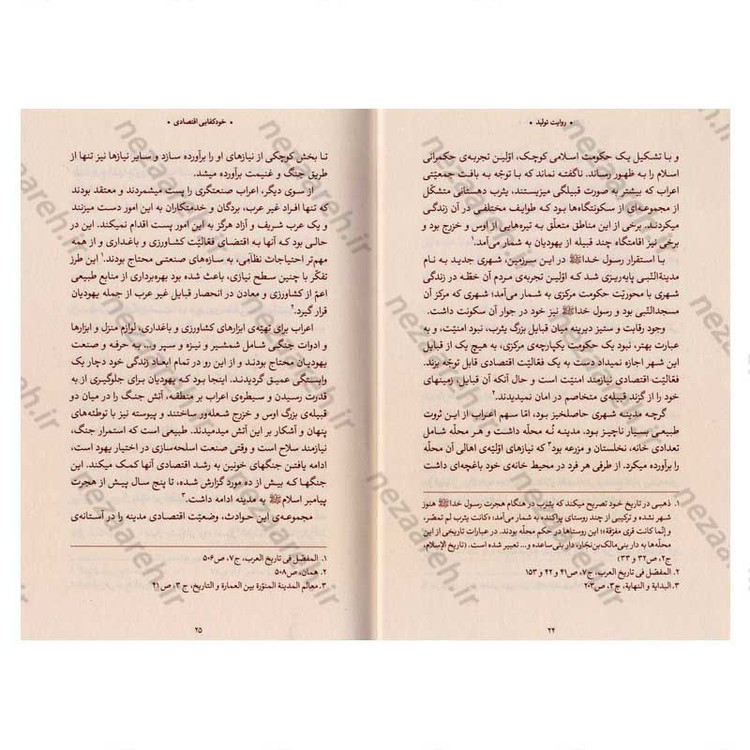 • روایت تولید •
و با تشکیل یک حکومت اسلامی کوچک، اوّلین تجربه‌ی حکمرانی
اسلام را به ظهور رساند. ناگفته نماند که با توجّه به بافت جمعیّتی
اعراب که بیشتر به صورت قبیلگی میزیستند، یثرب دهستانی متشکّل
از مجموعه‌ای از سکونتگاه‌ها بود که طوایف مختلفی در آن زندگی
میکردند. برخی از این مناطق متعلّق به تیره‌هایی از اوس و خزرج بود و
برخی نیز اقامتگاه چند قبیله از یهودیان به شمار می‌آمد.۱
با استقرار رسول خدا ﷺ در این سرزمین، شهری جدید به نام
مدینةالنّبی پایه‌ریزی شد که اوّلین تجربه‌ی مردم آن خطّه در زندگی
شهری با محوریّت حکومت مرکزی به شمار می‌آمد؛ شهری که مرکز آن
مسجدالنّبی بود و رسول خدا ﷺ نیز خود در جوار آن سکونت داشت.
وجود رقابت و ستیز دیرینه میان قبایل بزرگ یثرب، نبود امنیّت، و به
عبارت بهتر، نبود یک حکومت یکپارچه‌ی مرکزی، به هیچ یک از قبایل
این شهر اجازه نمیداد دست به یک فعّالیّت اقتصادی قابل توجّه بزند.
فعّالیّت اقتصادی نیازمند امنیّت است و حال آنکه آن قبایل، زمینهای
خود را از گزند قبیله‌ی متخاصم در امان نمیدیدند.۲
گرچه مدینه شهری حاصلخیز بود، امّا سهم اعراب از این ثروت
طبیعی بسیار ناچیز بود. مدینه نُه محلّه داشت و هر محلّه شامل
تعدادی خانه، نخلستان و مزرعه بود۳ که نیازهای اوّلیّه‌ی اهالی آن محلّه
را برآورده میکرد. از طرفی هر فرد در محیط خانه‌ی خود باغچه‌ای داشت
۱. ذهبی در تاریخ خود تصریح میکند که یثرب در هنگام هجرت رسول خدا ﷺ هنوز
شهر نشده و ترکیبی از چند روستای پراکنده به شمار می‌آمد؛ «کانت یثرب لم تمصّر،
و إنّما کانت قری مفرّقة»؛ این روستاها در حکم محلّه بودند. در عبارات تاریخی از این
محلّه‌ها به دار بنی‌مالک‌بن‌نجّار، دار بنی‌ساعده و... تعبیر شده است. (تاریخ الإسلام،
ج۲، ص۳۲ و ۳۳)
۲. المفصّل فی تاریخ العرب، ج۷، ص۴۱ و ۴۲ و ۱۵۳
۳. البدایة و النهایة، ج۳، ص۲۰۳
۲۴
• خودکفایی اقتصادی •
تا بخش کوچکی از نیازهای او را برآورده سازد و سایر نیازها نیز تنها از
طریق جنگ و غنیمت برآورده میشد.
از سوی دیگر، اعراب صنعتگری را پست میشمردند و معتقد بودند
که تنها افراد غیر عرب، بردگان و خدمتکاران به این امور دست میزنند
و یک عرب شریف و آزاد هرگز به این امور پست اقدام نمیکند. این در
حالی بود که آنها به اقتضای فعّالیّت کشاورزی و باغداری و از همه
مهم‌تر احتیاجات نظامی، به سازه‌های صنعتی محتاج بودند.۱ این طرز
تفکّر با چنین سطح نیازی، باعث شده بود بهره‌برداری از منابع طبیعی
اعمّ از کشاورزی و معادن در انحصار قبایل غیر عرب از جمله یهودیان
قرار گیرد.۲
اعراب برای تهیّه‌ی ابزارهای کشاورزی و باغداری، لوازم منزل و ابزارها
و ادوات جنگی شامل شمشیر و نیزه و سپر و... به حرفه و صنعت
یهودیان محتاج بودند و از این رو در تمام ابعاد زندگی خود دچار یک
وابستگی عمیق گردیدند. اینجا بود که یهودیان برای جلوگیری از به
قدرت رسیدن و سیطره‌ی اعراب بر منطقه، آتش جنگ را در میان دو
قبیله‌ی بزرگ اوس و خزرج شعله‌ور ساختند و پیوسته نیز با توطئه‌های
پنهان و آشکار بر این آتش میدمیدند. طبیعی است که استمرار جنگ،
نیازمند سلاح است و وقتی صنعت اسلحه‌سازی در اختیار یهود است،
ادامه یافتن جنگهای خونین به رشد اقتصادی آنها کمک میکند. این
جنگها که بیش از ده مورد گزارش شده، تا پنج سال پیش از هجرت
پیامبر اسلام ﷺ به مدینه ادامه داشت.۳
مجموعه‌ی این حوادث، وضعیّت اقتصادی مدینه را در آستانه‌ی
۱. المفصّل فی تاریخ العرب، ج۷، ص۵۰۶
۲. همان، ص۵۰۸
۳. معالم المدینة المنوّرة بین العمارة و التاریخ، ج۳، ص۴۱
۲۵
nezaareh.ir